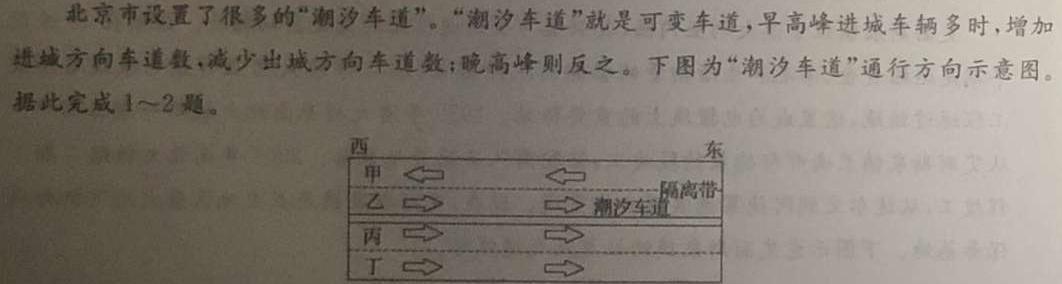 北京市设置了很多的“潮汐车道”。“潮汐车道”就是可变车道,早高峰进城车辆多时,增加
进城方向车道数,减少出城方向车道数;晚高峰则反之。下图为“潮汐车道”通行方向示意图。
据此完成1～2题。
西 东
甲
隔离带
乙 潮汐车道
丙
丁